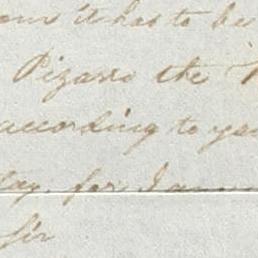 it has to be
Pizarro the
according to
for I am
Sir